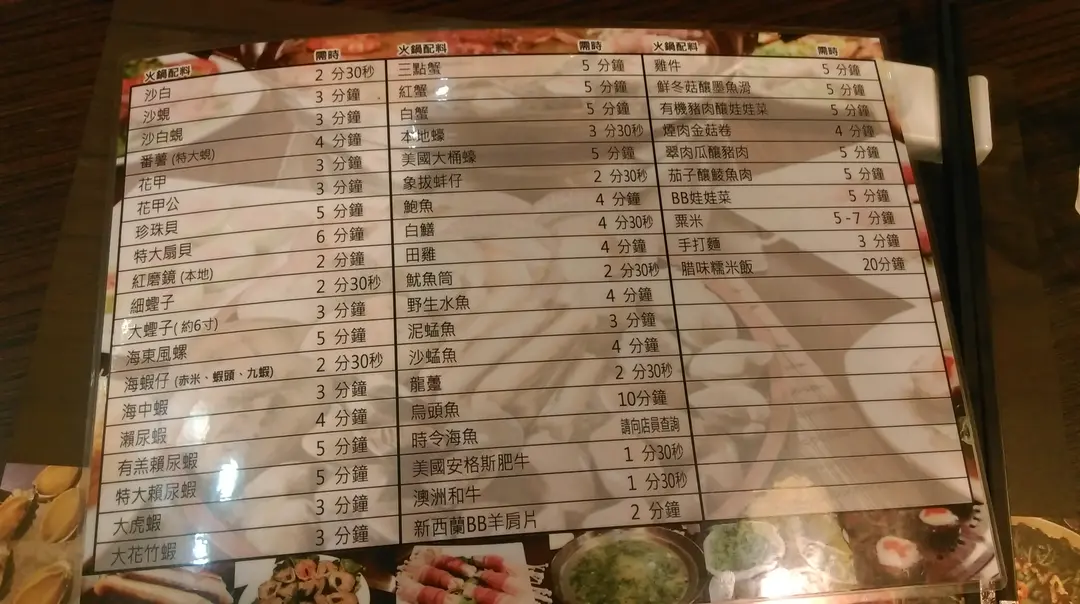 火鍋配料 需時
沙白 2 分30秒
沙蜆 3 分鐘
沙白蜆 3 分鐘
番薯 (特大蜆) 4 分鐘
花甲 3 分鐘
花甲公 3 分鐘
珍珠貝 5 分鐘
特大扇貝 6 分鐘
紅磨鏡 (本地) 2 分鐘
細蟶子 2 分30秒
大蟶子( 約6寸) 3 分鐘
海東風螺 5 分鐘
海蝦仔 (赤米、蝦頭、九蝦) 2 分30秒
海中蝦 3 分鐘
瀨尿蝦 4 分鐘
有羔賴尿蝦 5 分鐘
特大賴尿蝦 5 分鐘
大虎蝦 3 分鐘
大花竹蝦 3 分鐘
火鍋配料 需時
三點蟹 5 分鐘
紅蟹 5 分鐘
白蟹 5 分鐘
本地蠔 3 分30秒
美國大桶蠔 5 分鐘
象拔蚌仔 2 分30秒
鮑魚 4 分鐘
白鱔 4 分30秒
田雞 4 分鐘
魷魚筒 2 分30秒
野生水魚 4 分鐘
泥蜢魚 3 分鐘
沙蜢魚 4 分鐘
龍躉 2 分30秒
烏頭魚 10分鐘
時令海魚 請向店員查詢
美國安格斯肥牛 1 分30秒
澳洲和牛 1 分30秒
新西蘭BB羊肩片 2 分鐘
火鍋配料 需時
雞件 5 分鐘
鮮冬菇釀墨魚滑 5 分鐘
有機豬肉釀娃娃菜 5 分鐘
煙肉金菇卷 4 分鐘
翠肉瓜釀豬肉 5 分鐘
茄子釀鯪魚肉 5 分鐘
BB娃娃菜 5 分鐘
粟米 5-7 分鐘
手打麵 3 分鐘
腊味糯米飯 20分鐘